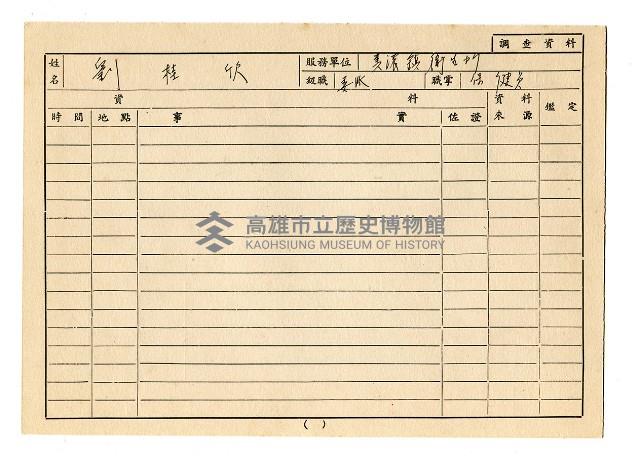 調查資料
姓名 劉桂欣 服務單位 美濃鎮衛生所
級職 委派 職掌 保健員
資料 資料來源 鑑定
時間 地點 事實 佐證
高雄市立歷史博物館
KAOHSIUNG MUSEUM OF HISTORY
( )